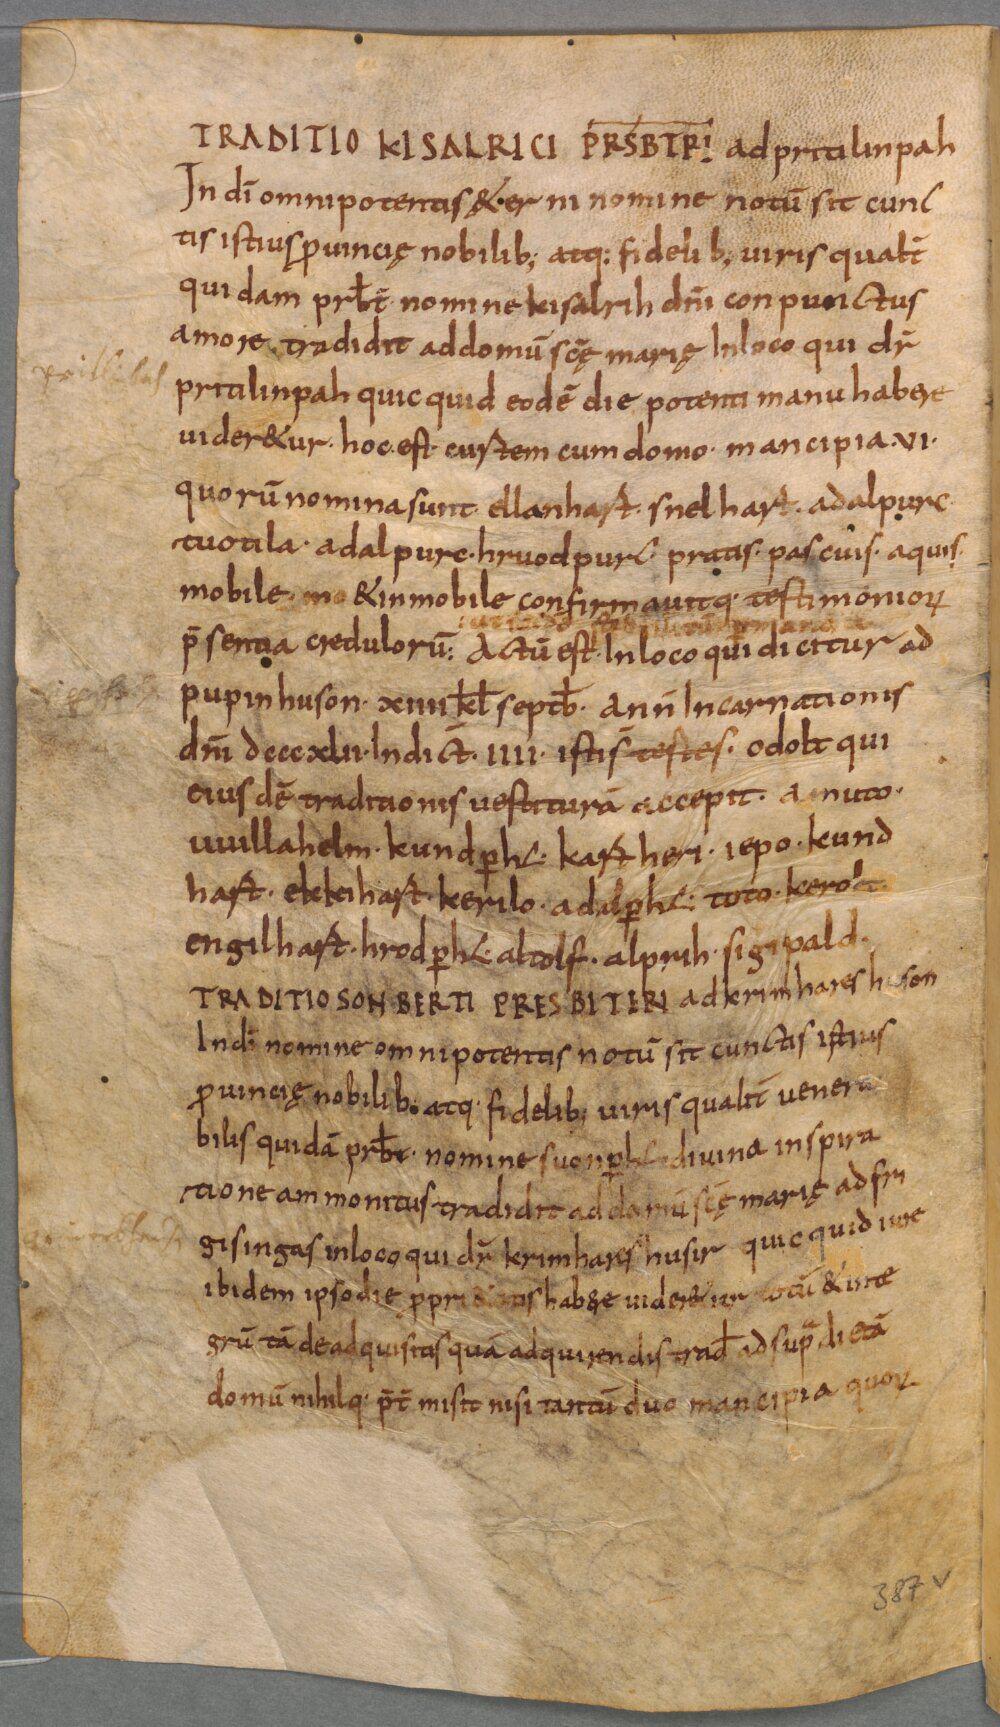 TRADITIO KISALRICI PRSBTRI ad pritilinpah
In dī omnipotentis & er ni nomine notū sit cunc
tis istius ꝓuincię nobilib; atq: fideli b; uiris qualt̄
qui dam prb̄t nomine kisalrih dn̄i conpunctus
amore tradidit ad domū scę̄ marię In loco qui dr̄
pritilinpah quic quid eodē die potenti manu habere
uider&ur· hoc·est curtem cum domo· mancipia·VI·
quorū nomina sunt ellanhart· snelhart· adalpurc·
tuotila· adalpurc· hruodpurc· pratis· pascuis· aquis·
mobile· &inmobile confirmauitq· testimonioꝝ
p̄sentia credulorū: Actū est· In loco qui dicitur ad
pupinhuson· xiiii kl̄ septb̄· Ann̄ Incarnationis
dn̄i dccc xlvi· Indict̄· IIII· istis testes· odolt qui
eius dē traditionis uestiturā accepit· amuto·
uuillahelm· kundꝑht· kartheri· iepo· kund
hart· ekkihart· kerilo· adalꝑht· toto· kerolt·
engilhart· hrodꝑht· altolf· alprih· sigipald·
TRADITIO SONBERTI PRESBITERI ad krimhares huson
In dī nomine omnipotentis notū sit cunctis istius
ꝓuincię nobilib· atq· fidelib; uiris qualit̄ uenera
bilis quidā prb̄t· nomine suonꝑht diuina inspira
tione ammonitus tradidit ad domū scę̄ marię ad fri
gisingas in loco qui dr̄ krimhares husir quic quid iure
ibidem ipso die ꝓpri&atis habere uider&ur totū & inte
grū tā de adquisitis quā adquirendis trad̄ ad sup̄ dictā
domū nihilq· p̄t̄ misit nisi tantū duo mancipia quoꝝ
387 v